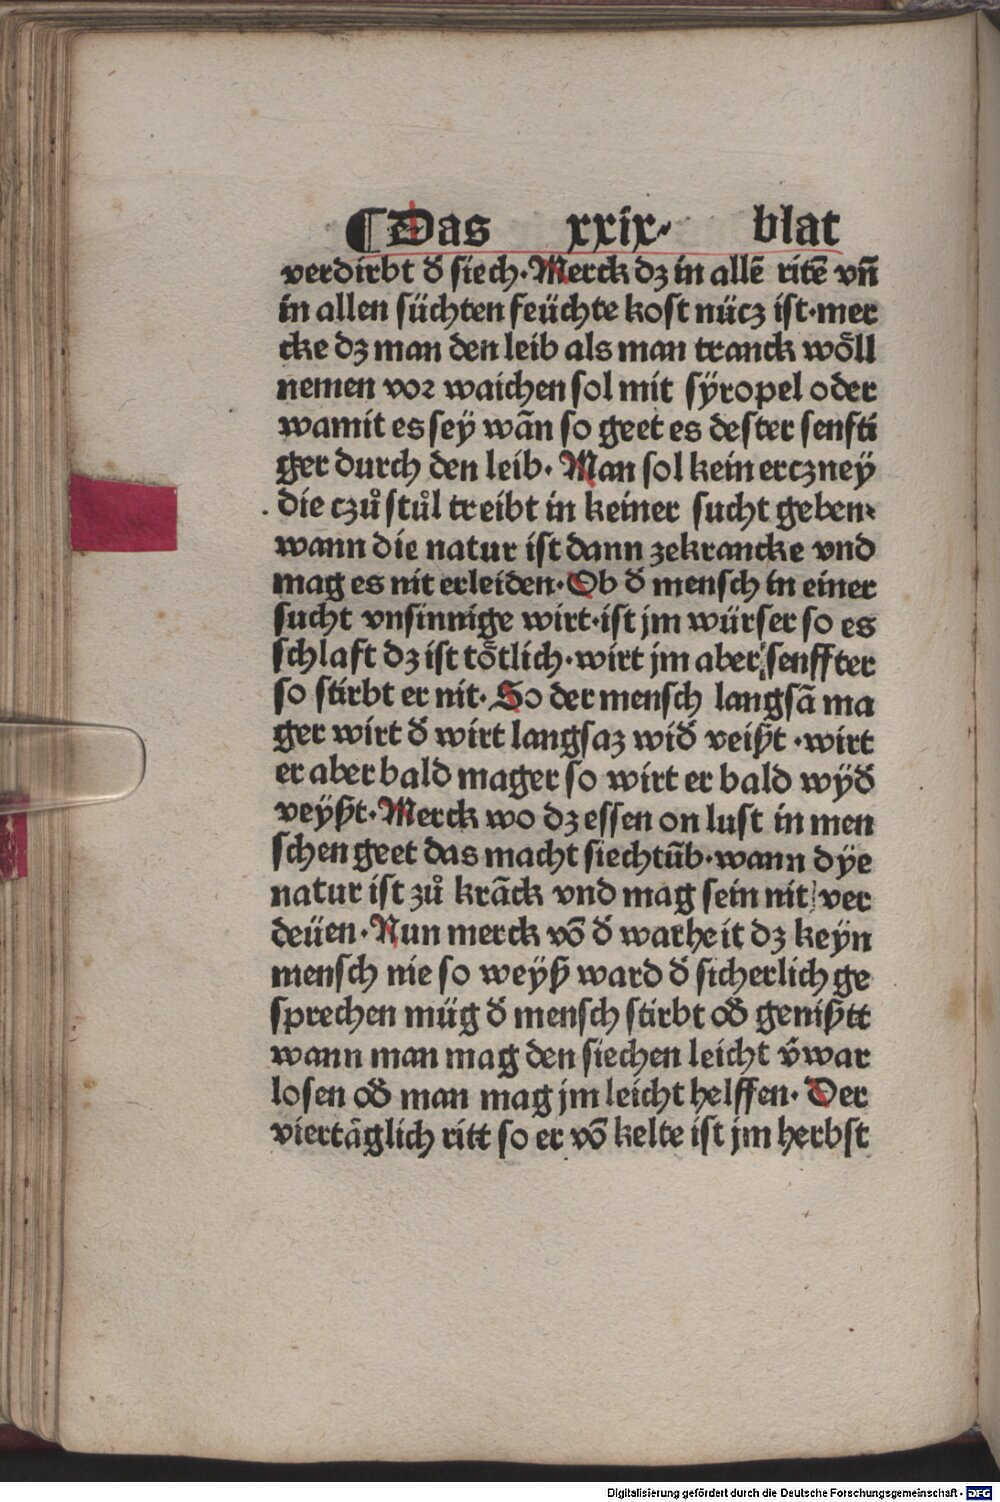 ¶ Das xxix· blat
verdirbt ð siech·Merck dz in allẽ ritẽ vñ
in allen süchten feüchte kost nücz ist·mer
cke dz man den leib als man tranck wo̎ll
nemen voꝛ waichen sol mit sÿropel oder
wamit es seÿ wãn so geet es dester senfti
ger durch den leib· Man sol kein ercznëÿ
die czů stůl treibt in keiner sucht geben·
wann die natur ist dann zekrancke vnd
mag es nit erleiden·Ob ð mensch in einer
sucht vnsinnige wirt·ist jm würser so es
schlaft dz ist to̎tlich·wirt jm aber senffter
so stirbt er nit· So der mensch langsã ma
ger wirt ð wirt langsaz wið veißt ·wirt
er aber bald mager so wirt er bald wÿð
veÿßt·Merck wo dz essen on lust in men
schen geet das macht siechtũb·wann dÿe
natur ist zů krãck vnd mag sein nit ver
deüen·Nun merck võ ð warheit dz keÿn
mensch nie so weÿß ward ð sicherlich ge
sprechen müg ð mensch stirbt oð genißtt
wann man mag den siechen leicht v̄war
losen oð man mag jm leicht helffen· Der
viertäglich ritt so er võ kelte ist jm herbst
Digitalisierung gefördert durch die Deutsche Forschungsgemeinschaft - DFG